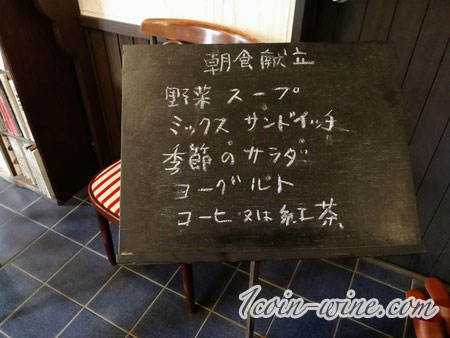 朝食献立
野菜 スープ
ミックス サンドイッチ
季節のサラダ
ヨーグルト
コーヒ 又は 紅茶
1coin-wine.com